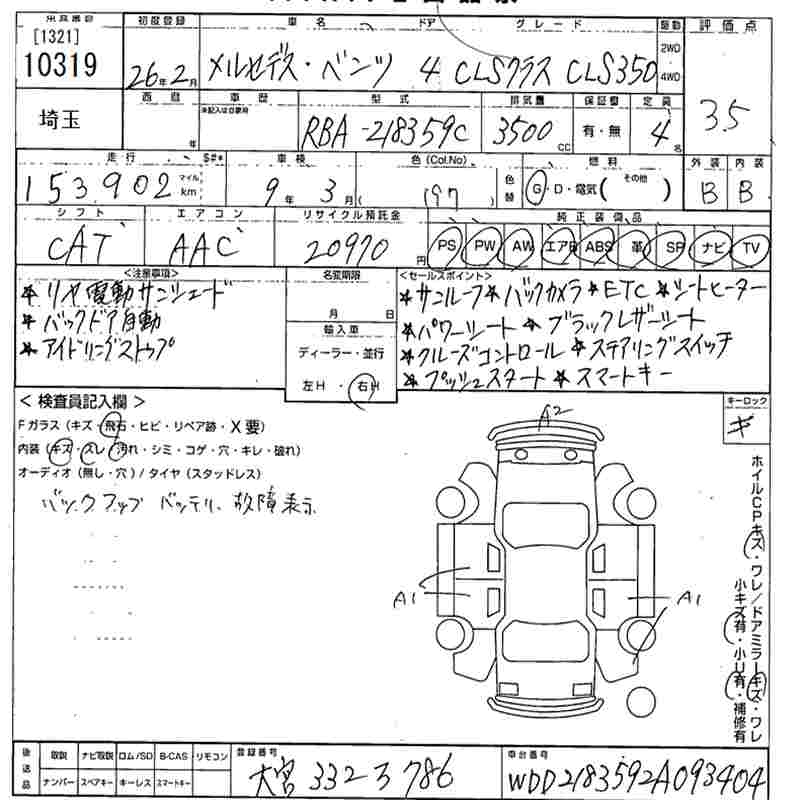 [1321]
10319
初度登録
26年2月
車名 ドア グレード
メルセデス・ベンツ 4 CLSクラス CLS350
駆動
2WD
4WD
評価点
3.5
埼玉
西暦
年
車歴
※記入は自家用
型式
RBA-218359C
排気量
3500cc
保証書
有・無
定員
4名
走行
153,902
マイル
km
$#*
車検
9年3月
色(Col.No)
(197)
色替
燃料
G・D・電気( その他 )
外装
B
内装
B
シフト
CAT
エアコン
AAC
リサイクル預託金
20970円
純正装備品
PS PW AW エアB ABS 革 SR ナビ TV
<注意事項>
★リヤ電動サンシェード
★バックドア自動
★アイドリングストップ
名変期限
月 日
輸入車
ディーラー・並行
左H・右H
<セールスポイント>
★サンルーフ★バックカメラ★ETC★シートヒーター
★パワーシート★ブラックレザーシート
★クルーズコントロール★ステアリングスイッチ
★プッシュスタート★スマートキー
<検査員記入欄>
Fガラス(キズ・飛石・ヒビ・リペア跡・X要)
内装(キズ・スレ・汚れ・シミ・コゲ・穴・キレ・破れ)
オーディオ(無し・穴)/タイヤ(スタッドレス)
バックアップ バッテリー 故障表示
キーロック
キ
A2
A1
A1
ホイルCPキズ・ワレ/ドアミラーキズ・ワレ
小キズ有・小U有・補修有
後送品
取説 ナビ取説 ロム/SD B-CAS リモコン
ナンバー スペアキー キーレス スマートキー
登録番号
大宮 332 ろ 786
車台番号
WDD2183592A093404